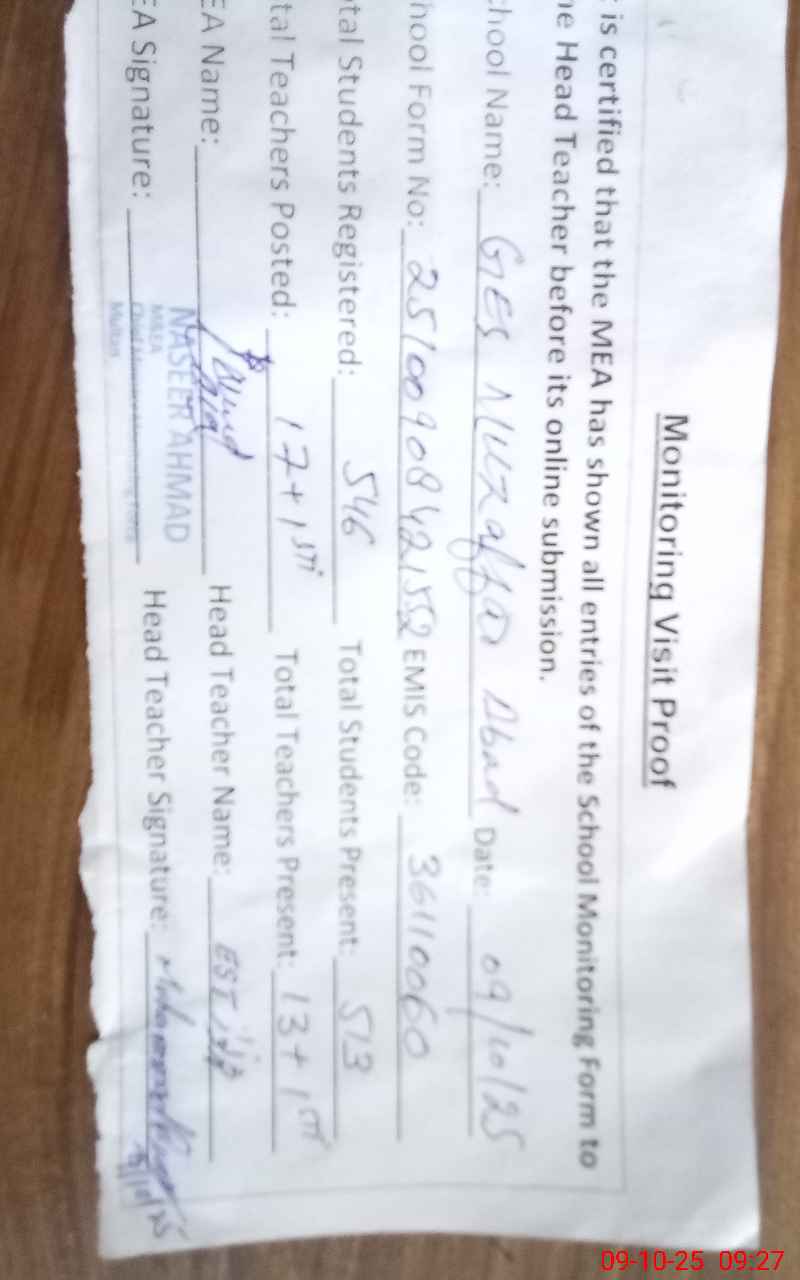 Monitoring Visit Proof
is certified that the MEA has shown all entries of the School Monitoring Form to
he Head Teacher before its online submission.
chool Name: GES Muzaffar Abad Date: 09/10/25
hool Form No: EMIS Code: 36110060
tal Students Registered: 546 Total Students Present: 513
tal Teachers Posted: 17+1 STI Total Teachers Present: 13+1 STI
EA Name: NASEER AHMAD Head Teacher Name: EST
EA Signature: Head Teacher Signature:
M&EA
Multan
09-10-25 09:27